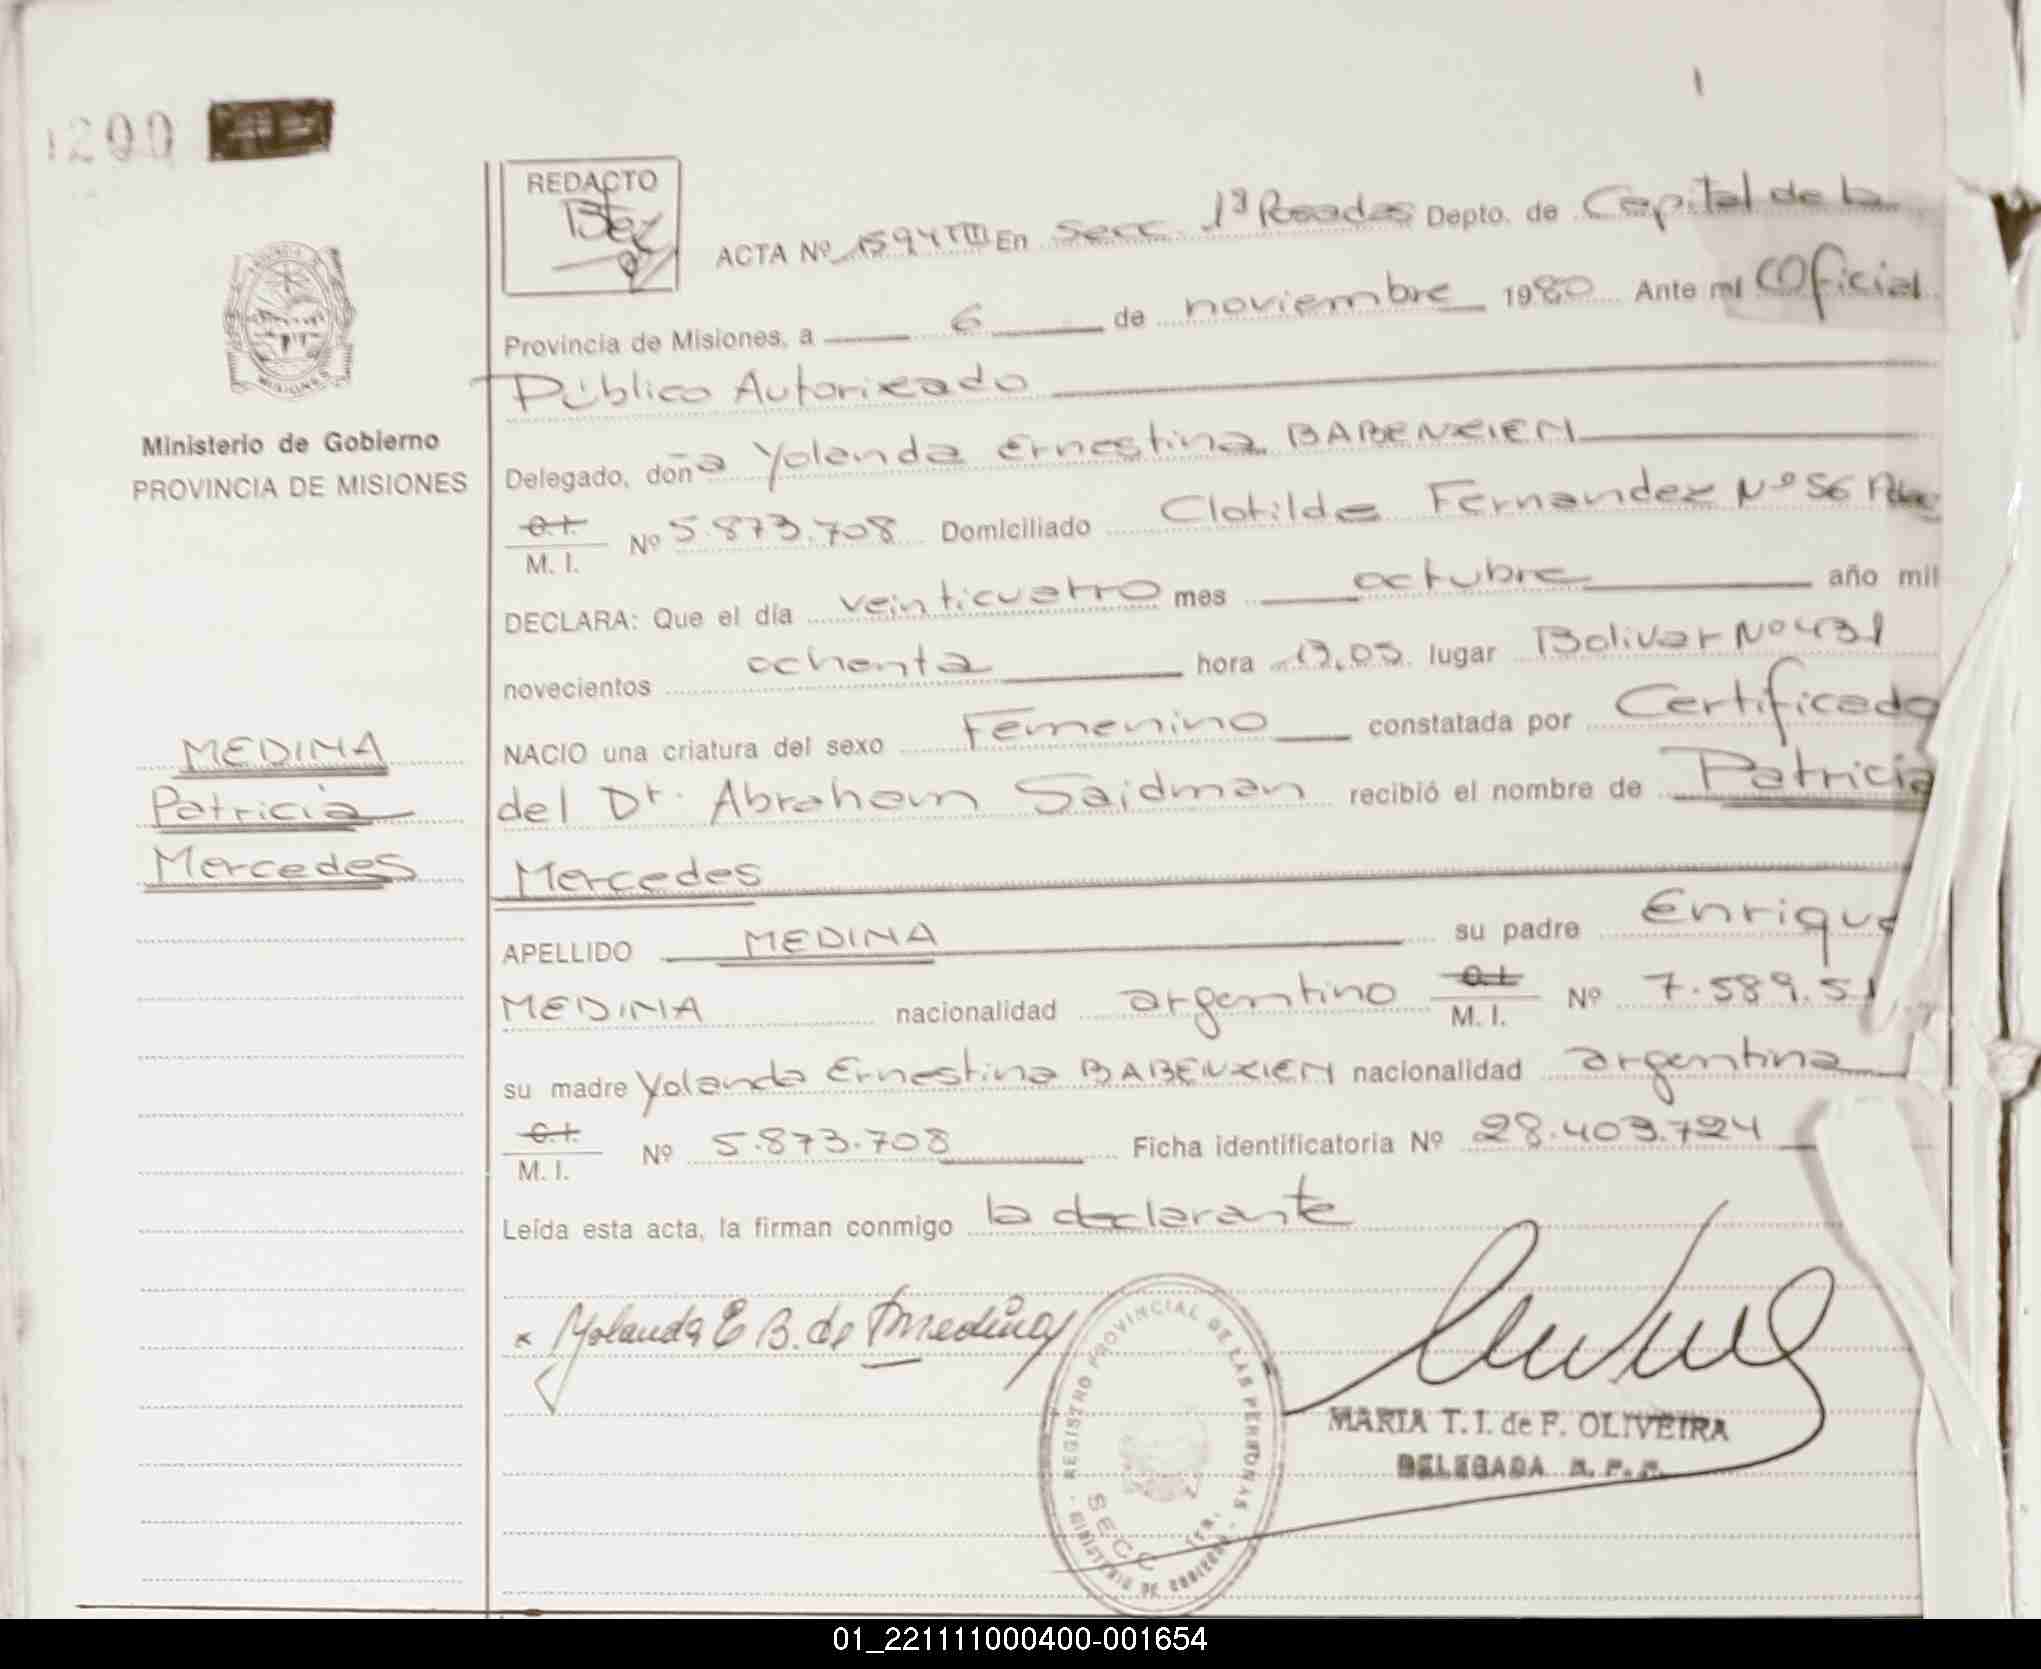 1200
REDACTO
ACTA Nº 1594 TIII En Secc. 1ª Posadas Depto. de Capital de la
Provincia de Misiones, a 6 de noviembre 1980 Ante mí Oficial
Público Autorizado
Ministerio de Gobierno
PROVINCIA DE MISIONES
Delegado, doña Yolanda Ernestina BABENZIEN
C.I.
M. I. Nº 5.873.708 Domiciliado Clotilde Fernandez Nº 56
DECLARA: Que el día veinticuatro mes octubre año mil
novecientos ochenta hora lugar Bolivar Nº 431
NACIO una criatura del sexo Femenino constatada por Certificado
del Dr. Abraham Saidman recibió el nombre de Patricia
Mercedes
MEDINA
Patricia
Mercedes
APELLIDO MEDINA su padre Enrique
MEDINA nacionalidad argentino C.I.
M. I. Nº 7.589.51
su madre Yolanda Ernestina BABENZIEN nacionalidad argentina
C.I.
M. I. Nº 5.873.708 Ficha identificatoria Nº 28.403.724
Leída esta acta, la firman conmigo la declarante
x Yolanda E B. de Medina
REGISTRO PROVINCIAL DE LAS PERSONAS
SECC 1ra.
MINISTERIO DE GOBIERNO
MARIA T. I. de F. OLIVEIRA
DELEGADA R. P. P.
01_221111000400-001654